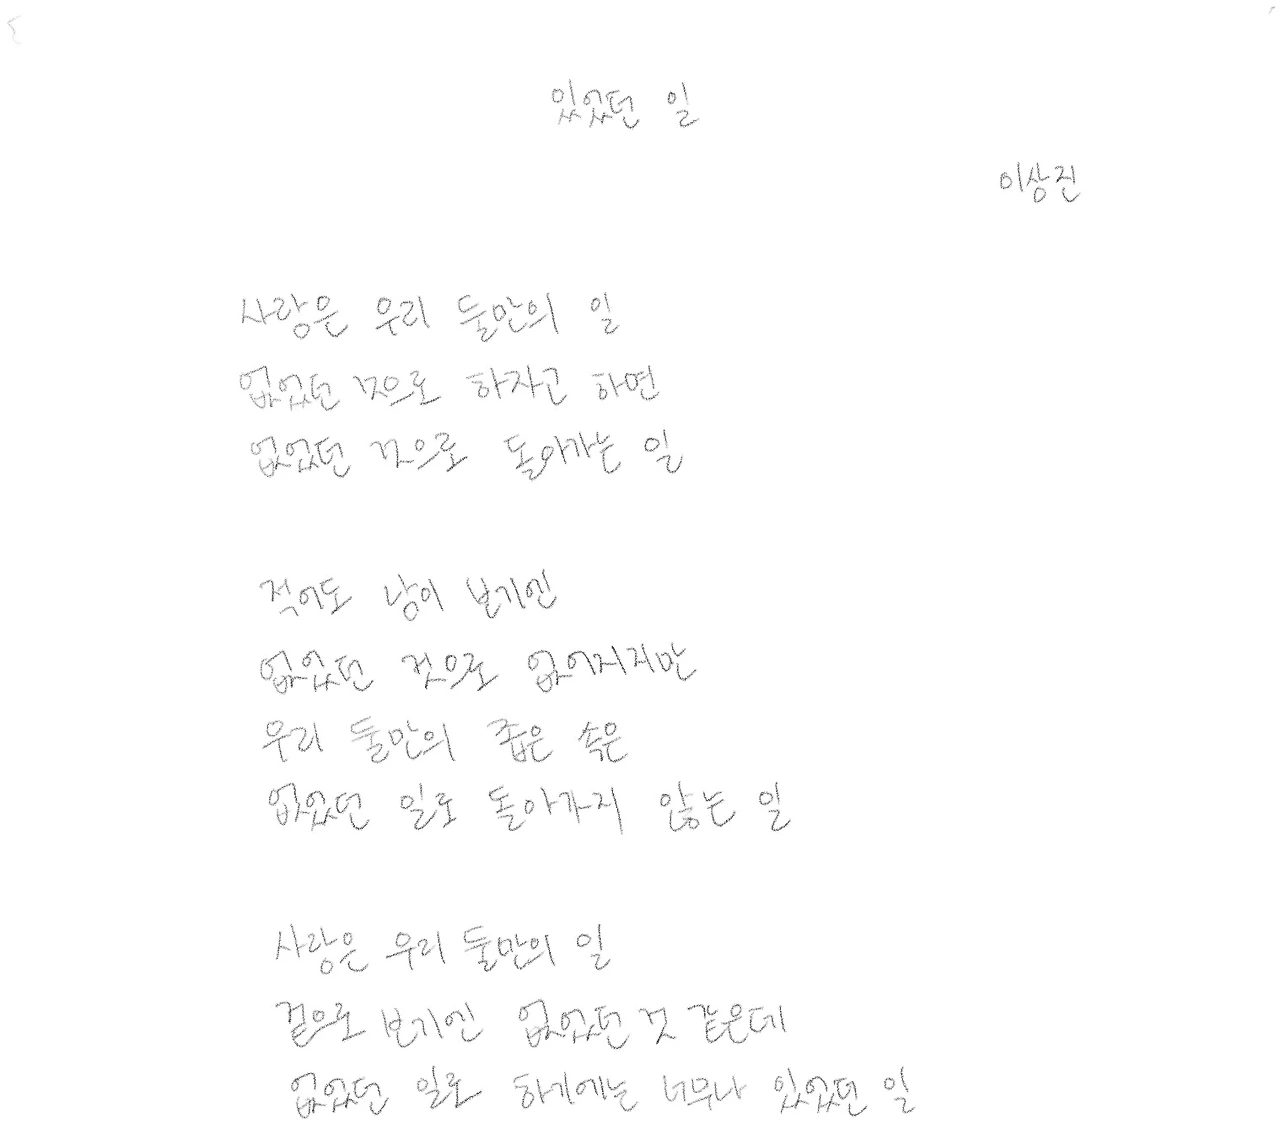 있었던 일
이상진
사랑은 우리 둘만의 일
없었던 것으로 하자고 하면
없었던 것으로 돌아가는 일
적어도 남이 보기엔
없었던 것으로 없어지지만
우리 둘만의 좁은 속은
없었던 일로 돌아가지 않는 일
사랑은 우리 둘만의 일
겉으로 보기엔 없었던 것 같은데
없었던 일로 하기에는 너무나 있었던 일